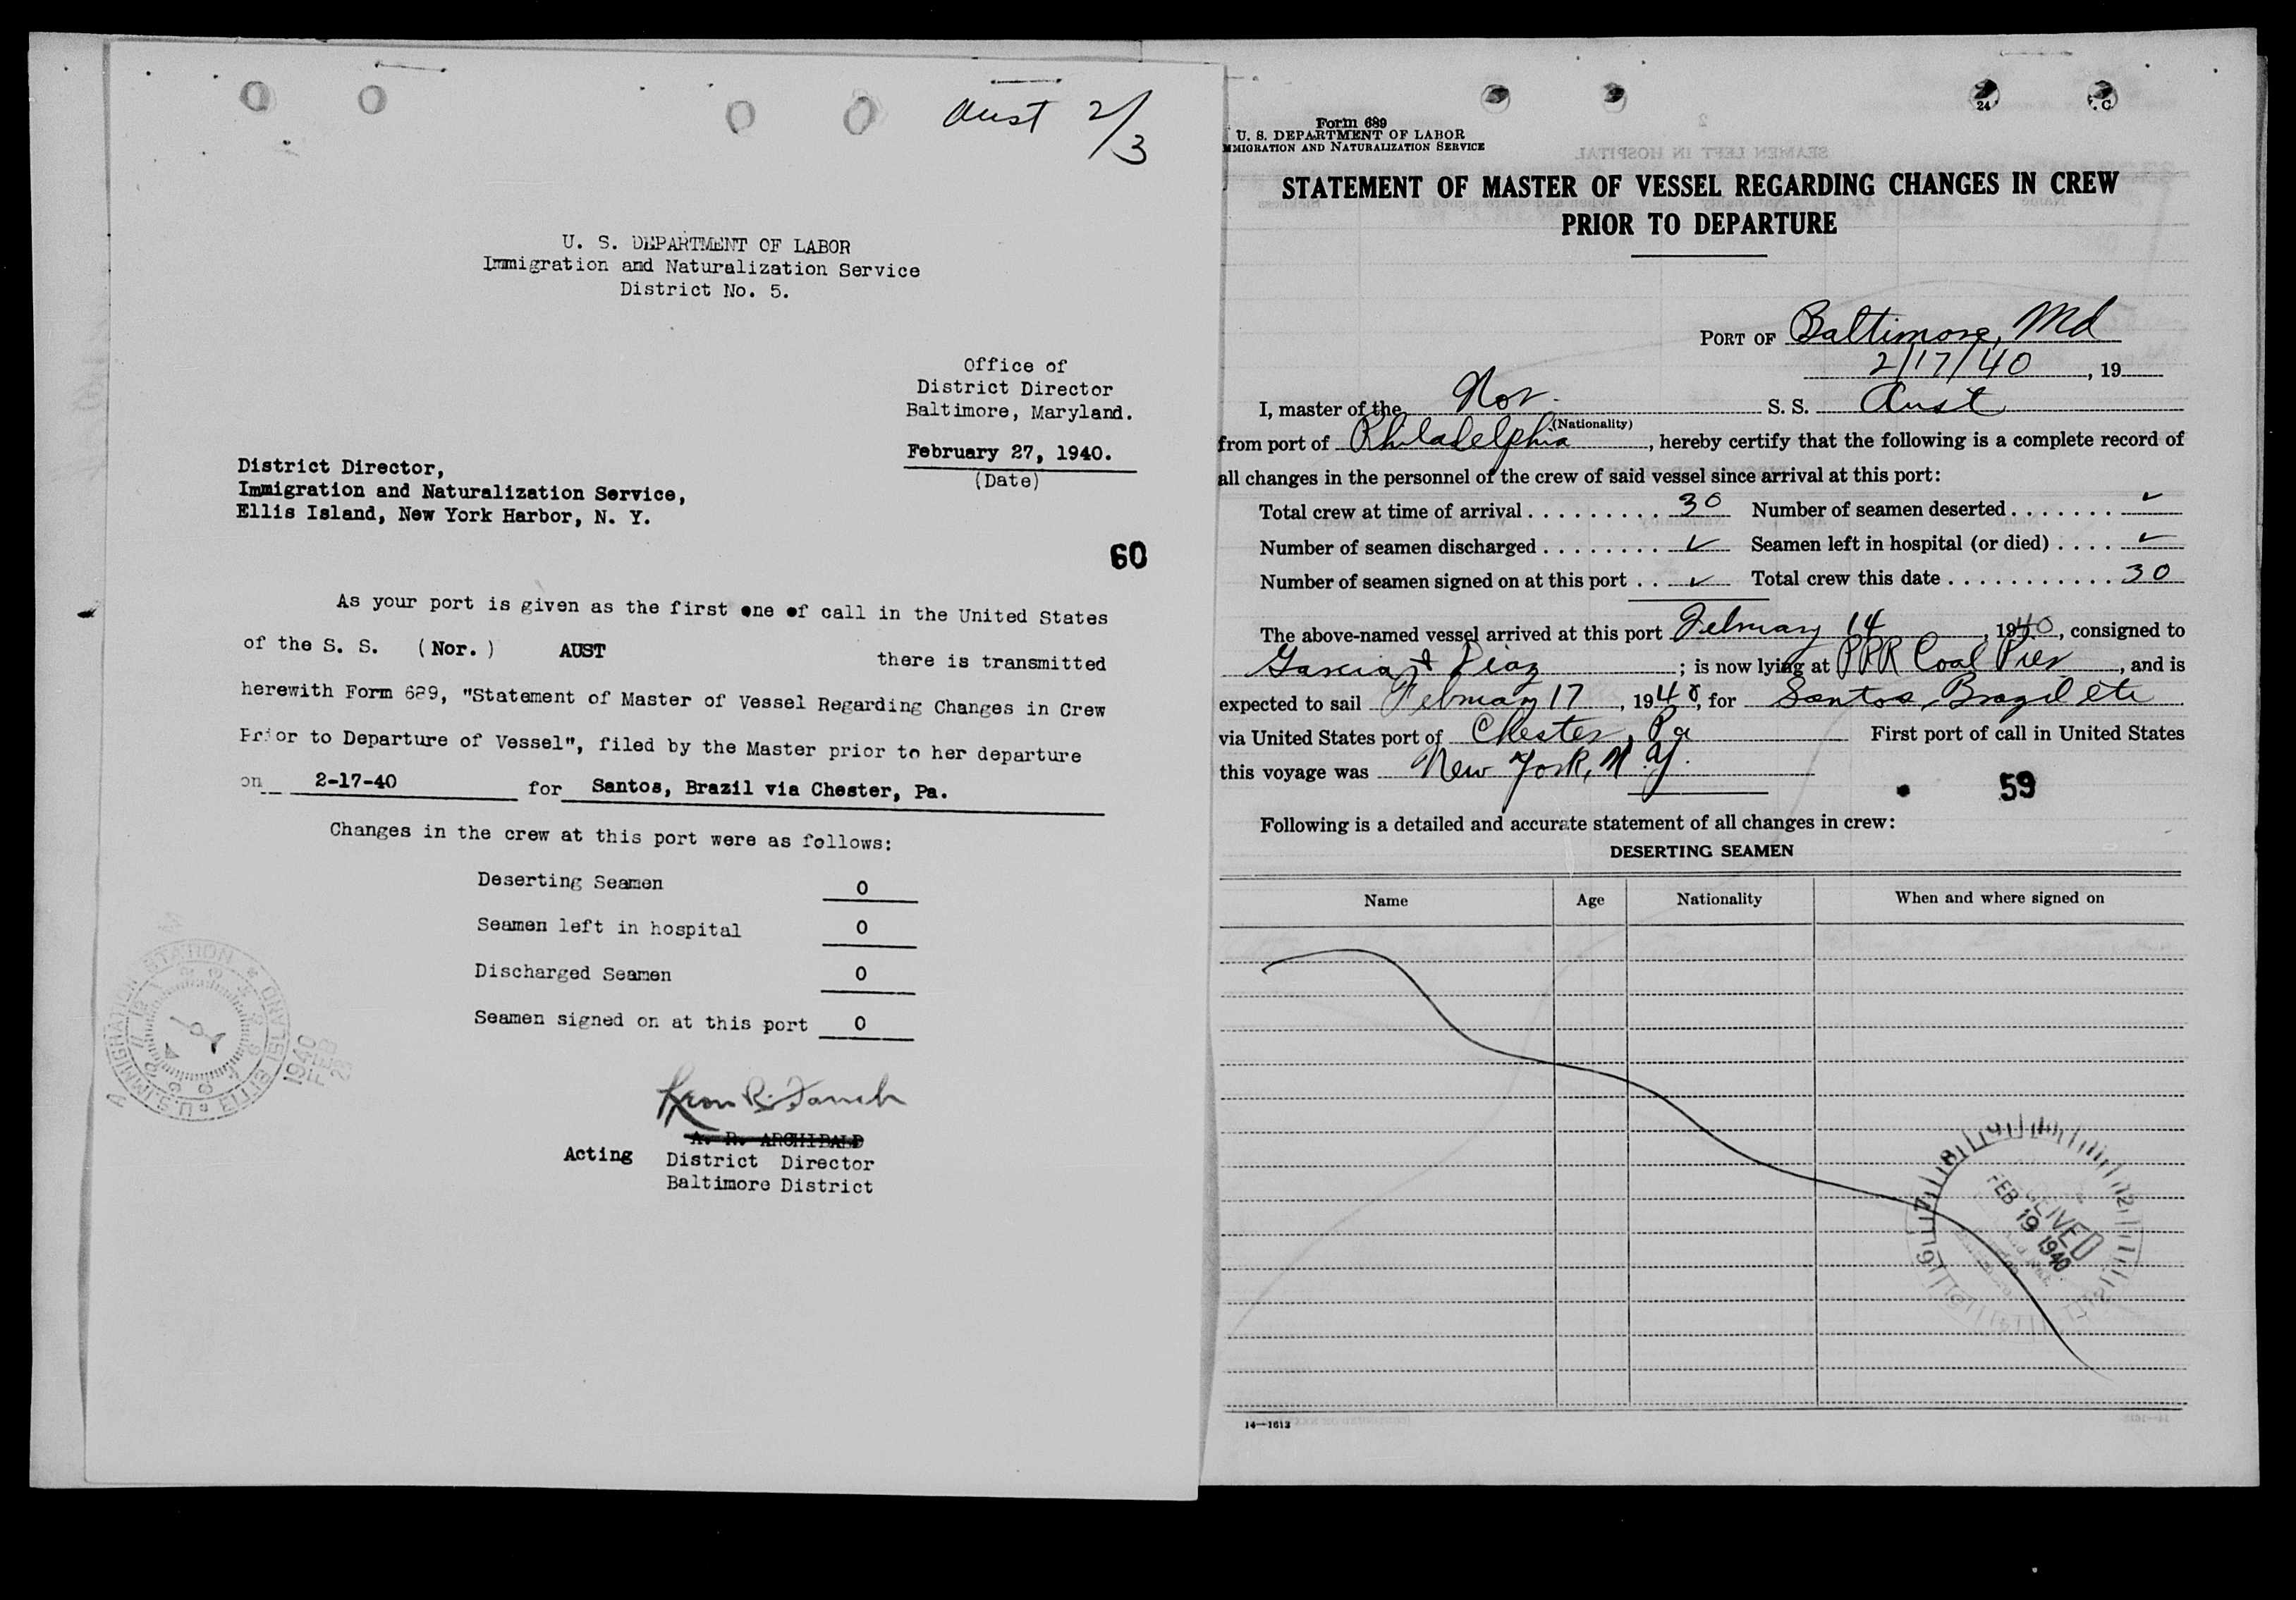 Aust 2/3
U. S. DEPARTMENT OF LABOR
Immigration and Naturalization Service
District No. 5.
Office of
District Director
Baltimore, Maryland.
February 27, 1940.
(Date)
District Director,
Immigration and Naturalization Service,
Ellis Island, New York Harbor, N. Y.
60
As your port is given as the first one of call in the United States
of the S. S. (Nor.) AUST there is transmitted
herewith Form 689, "Statement of Master of Vessel Regarding Changes in Crew
Prior to Departure of Vessel", filed by the Master prior to her departure
on 2-17-40 for Santos, Brazil via Chester, Pa.
Changes in the crew at this port were as follows:
Deserting Seamen 0
Seamen left in hospital 0
Discharged Seamen 0
Seamen signed on at this port 0
A. R. ARCHIBALD
Acting District Director
Baltimore District
U.S. IMMIGRATION STATION ELLIS ISLAND
1940
FEB
28
Form 689
U. S. DEPARTMENT OF LABOR
IMMIGRATION AND NATURALIZATION SERVICE
STATEMENT OF MASTER OF VESSEL REGARDING CHANGES IN CREW
PRIOR TO DEPARTURE
PORT OF Baltimore, Md
2/17/40, 19
I, master of the Nor. S. S. Aust
(Nationality)
from port of Philadelphia, hereby certify that the following is a complete record of
all changes in the personnel of the crew of said vessel since arrival at this port:
Total crew at time of arrival . . . . . . . . . 30 Number of seamen deserted . . . . . . . ✓
Number of seamen discharged . . . . . . . . ✓ Seamen left in hospital (or died) . . . . ✓
Number of seamen signed on at this port . . ✓ Total crew this date . . . . . . . . . . . 30
The above-named vessel arrived at this port February 14, 1940, consigned to
Garcia & Diaz; is now lying at PRR Coal Pier, and is
expected to sail February 17, 1940, for Santos, Brazil etc
via United States port of Chester, Pa First port of call in United States
this voyage was New York, N.Y.
59
Following is a detailed and accurate statement of all changes in crew:
DESERTING SEAMEN
Name Age Nationality When and where signed on
RECEIVED
FEB 19 1940
14—1612